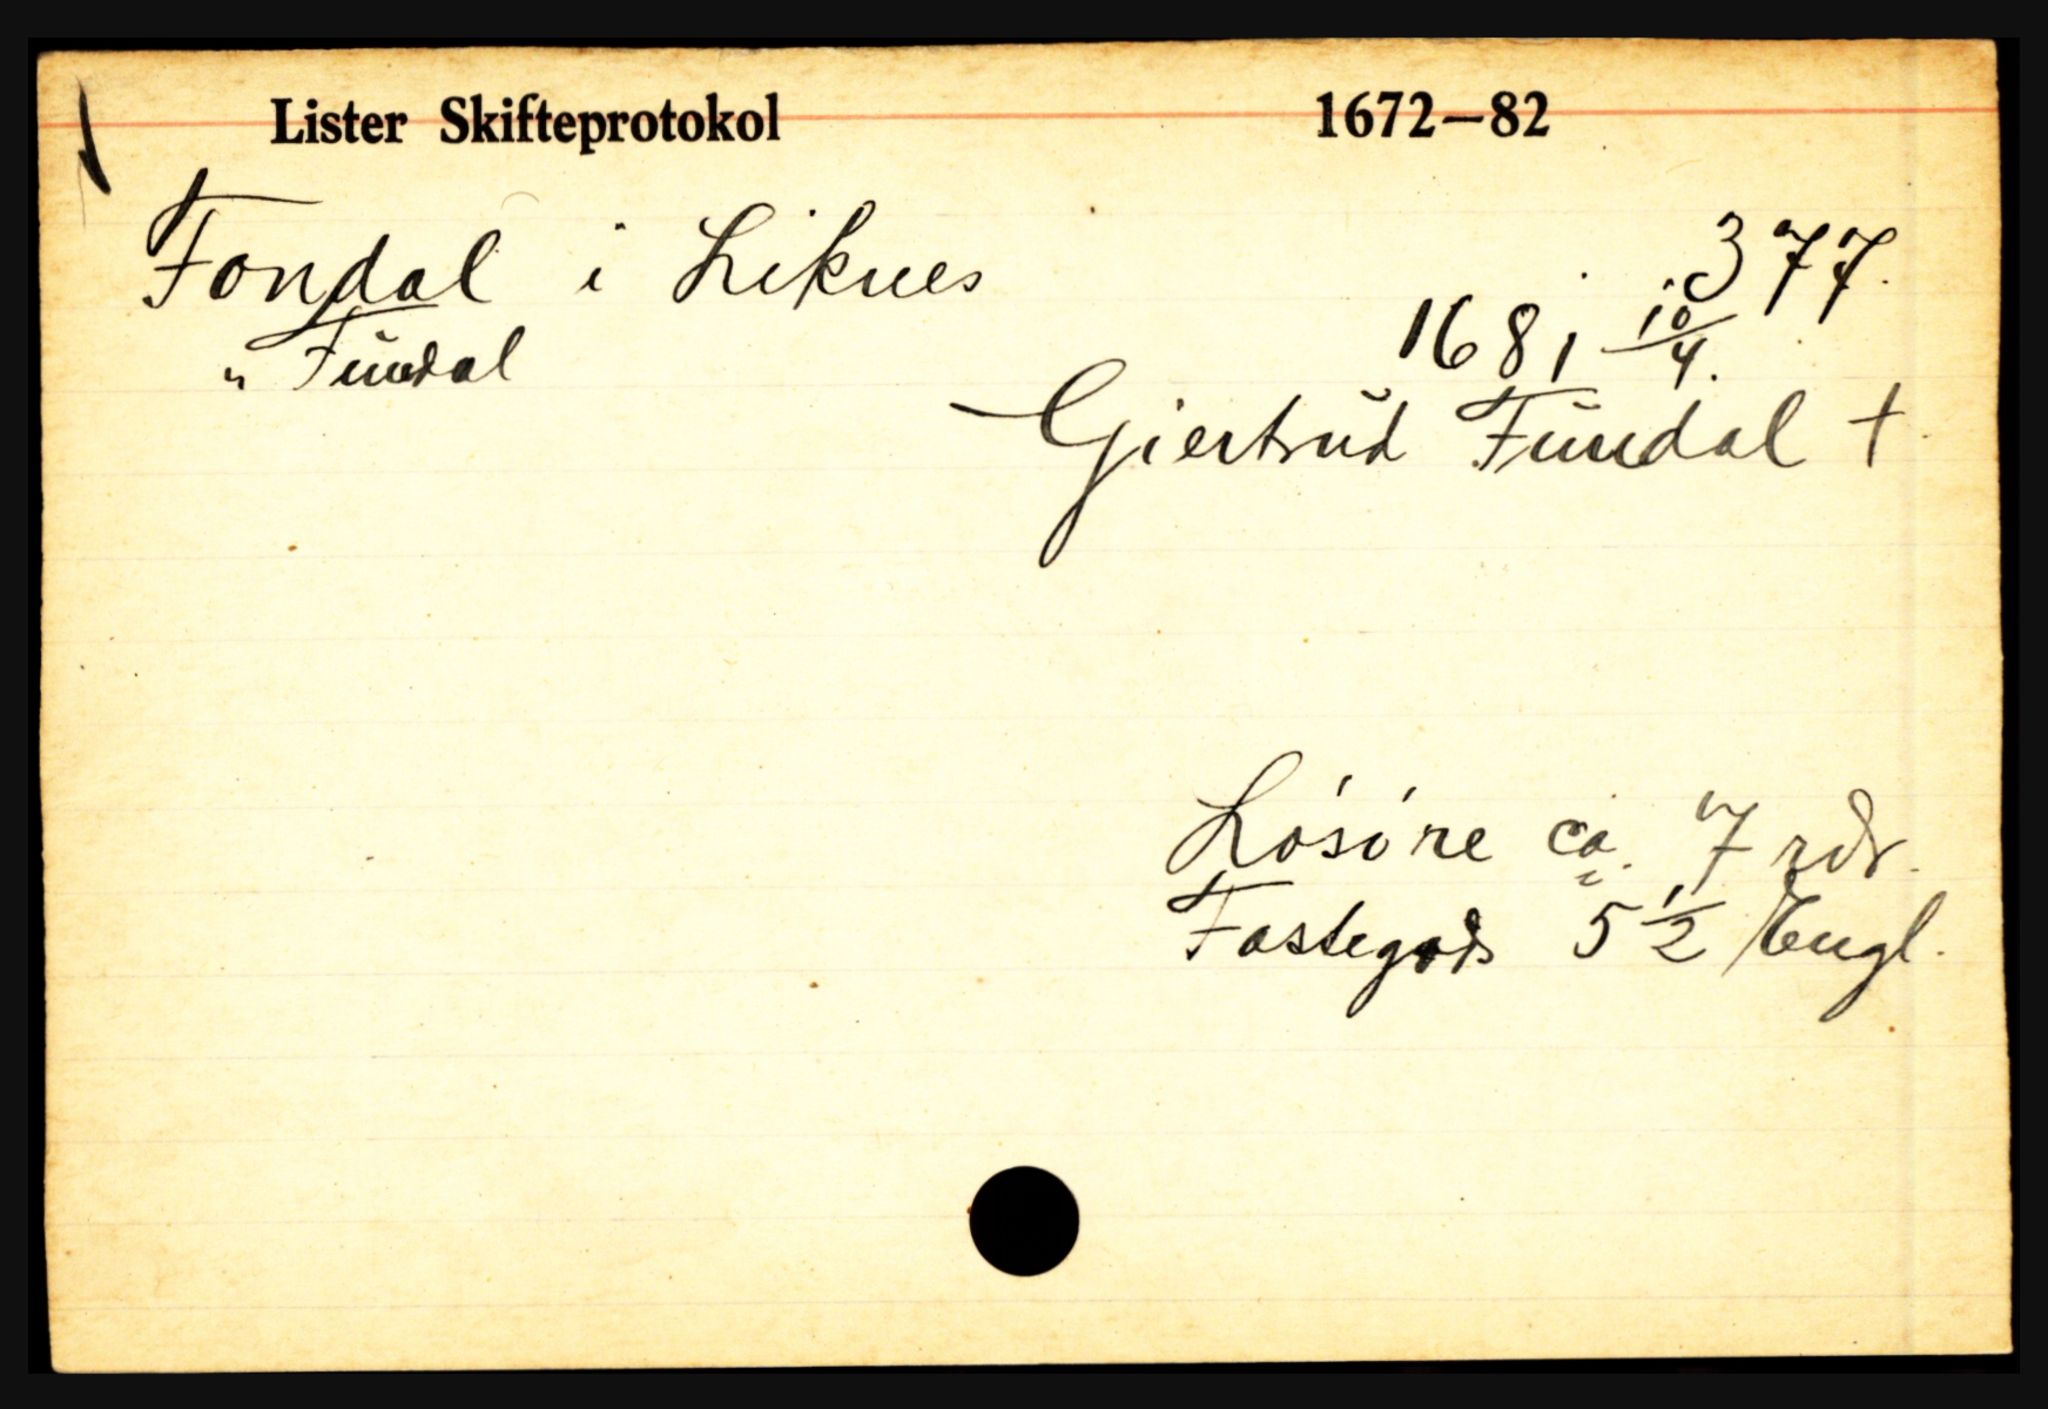 Lister Skifteprotokol 1672—82
Fondal i Liknes
377.
„ Fŭndal
1681 10/4.
Gjertrŭd Fŭndal †
Lösöre ca. 7 rdr.
Fastegods 5 1/2 Engl.